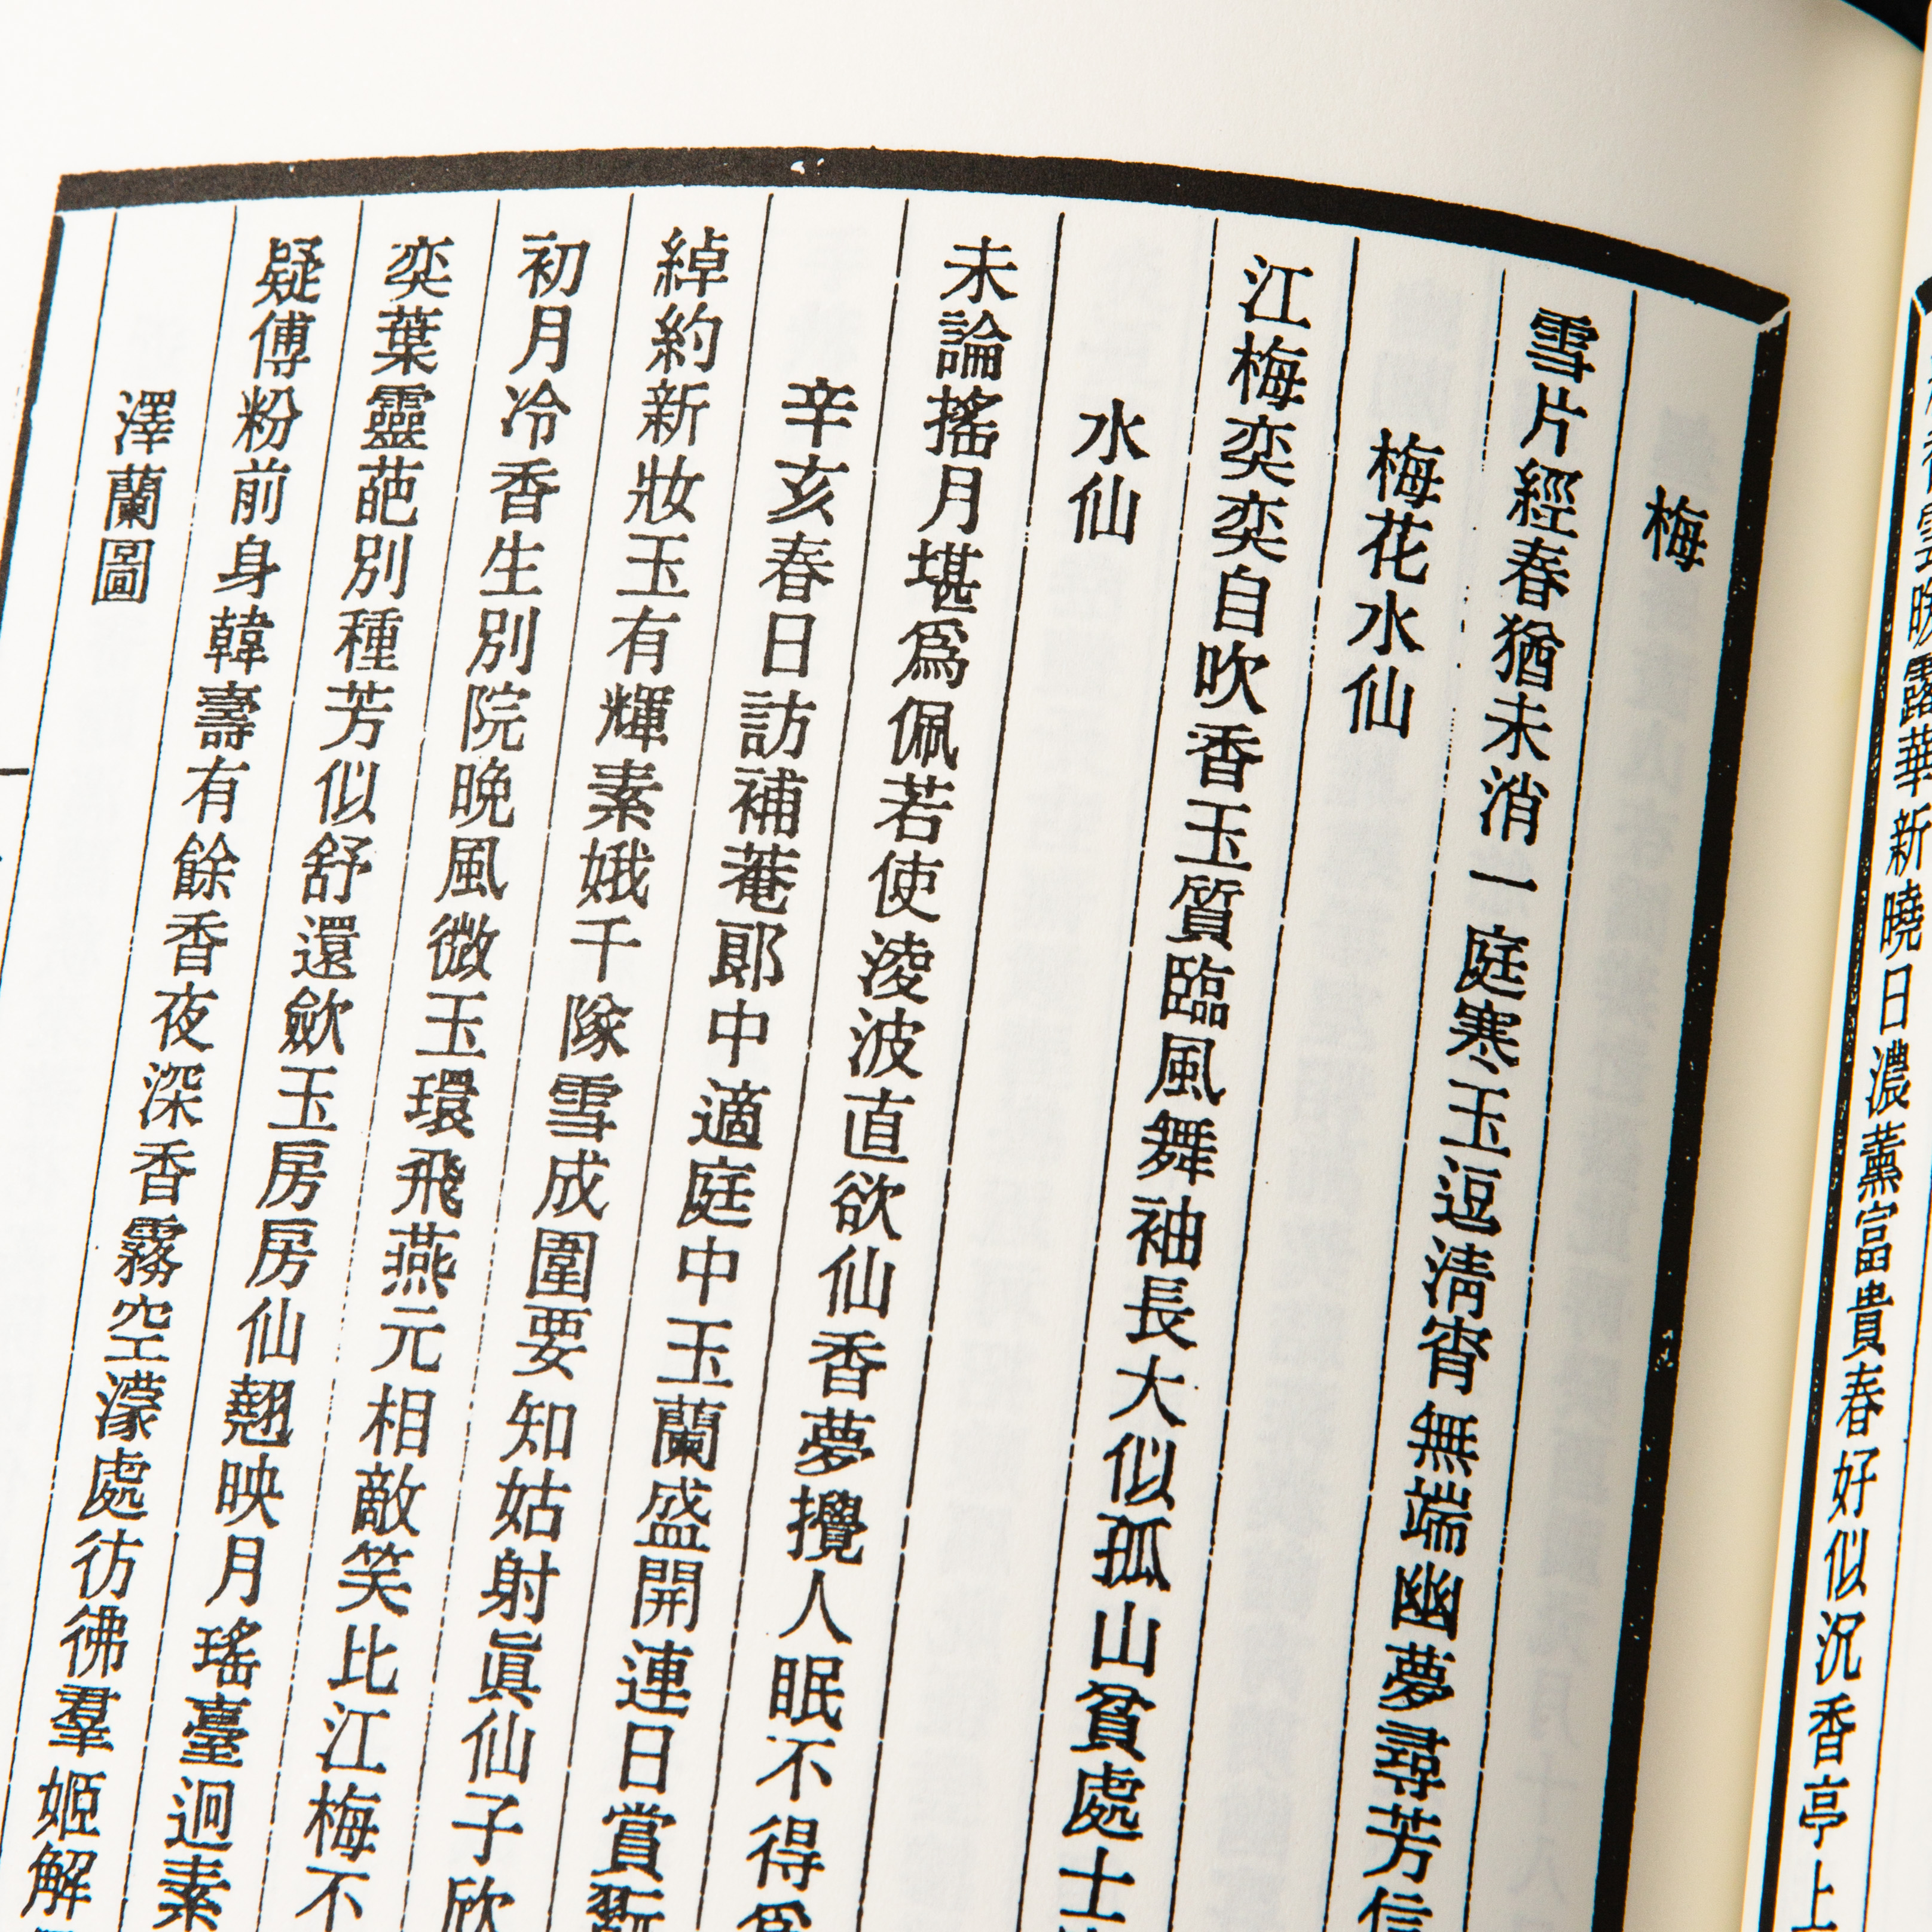 露華新曉日濃薰富貴春好似沉香亭上
梅
雪片經春猶未消一庭寒玉逗淸宵無端幽夢尋芳信
梅花水仙
江梅奕奕自吹香玉質臨風舞袖長大似孤山貧處士
水仙
未論搖月堪爲佩若使淩波直欲仙香夢攪人眠不得爲
辛亥春日訪補菴郞中適庭中玉蘭盛開連日賞翫
綽約新妝玉有輝素娥千隊雪成圍要知姑射眞仙子欣
初月冷香生別院晚風微玉環飛燕元相敵笑比江梅不
奕葉靈葩別種芳似舒還歛玉房房仙翹映月瑤臺迥素
疑傅粉前身韓壽有餘香夜深香霧空濛處彷彿羣姬解
澤蘭圖